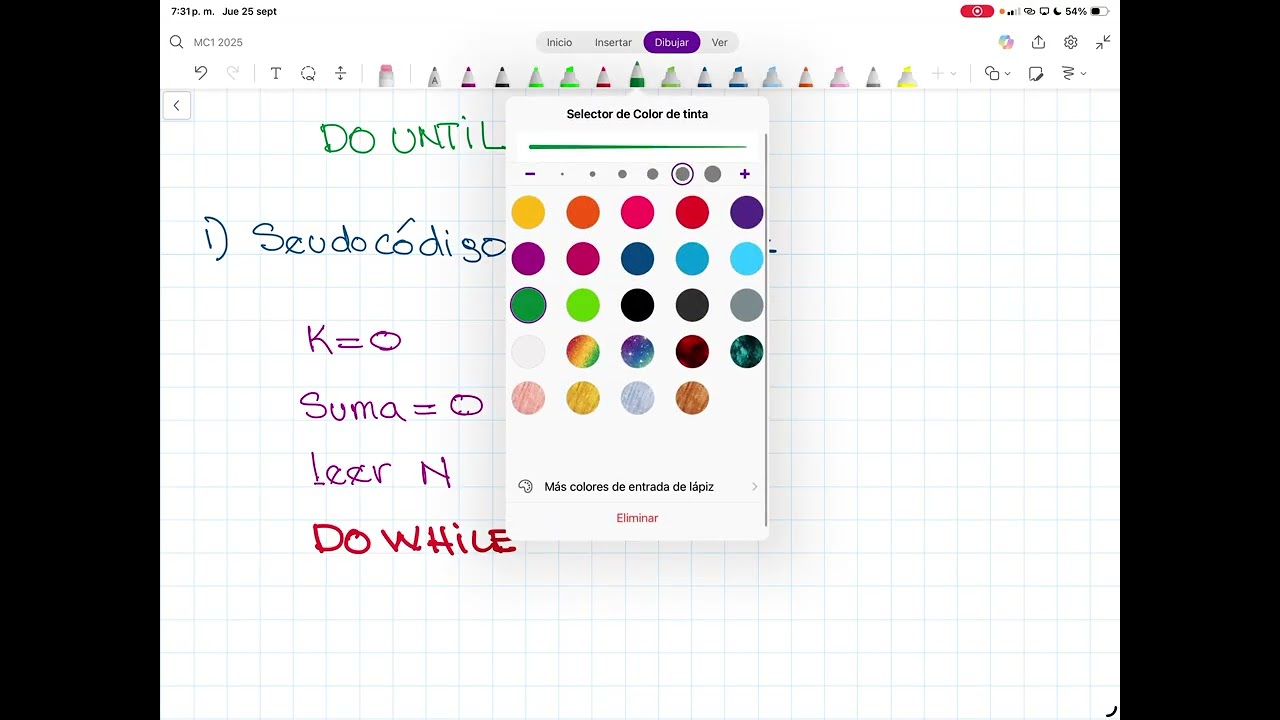 7:31 p. m. Jue 25 sept
54%
MC1 2025
Inicio Insertar Dibujar Ver
T
A
Selector de Color de tinta
DO UNTIL
i) Seudocódigo
K=0
Suma = 0
Leer N
Más colores de entrada de lápiz
Eliminar
DO WHILE